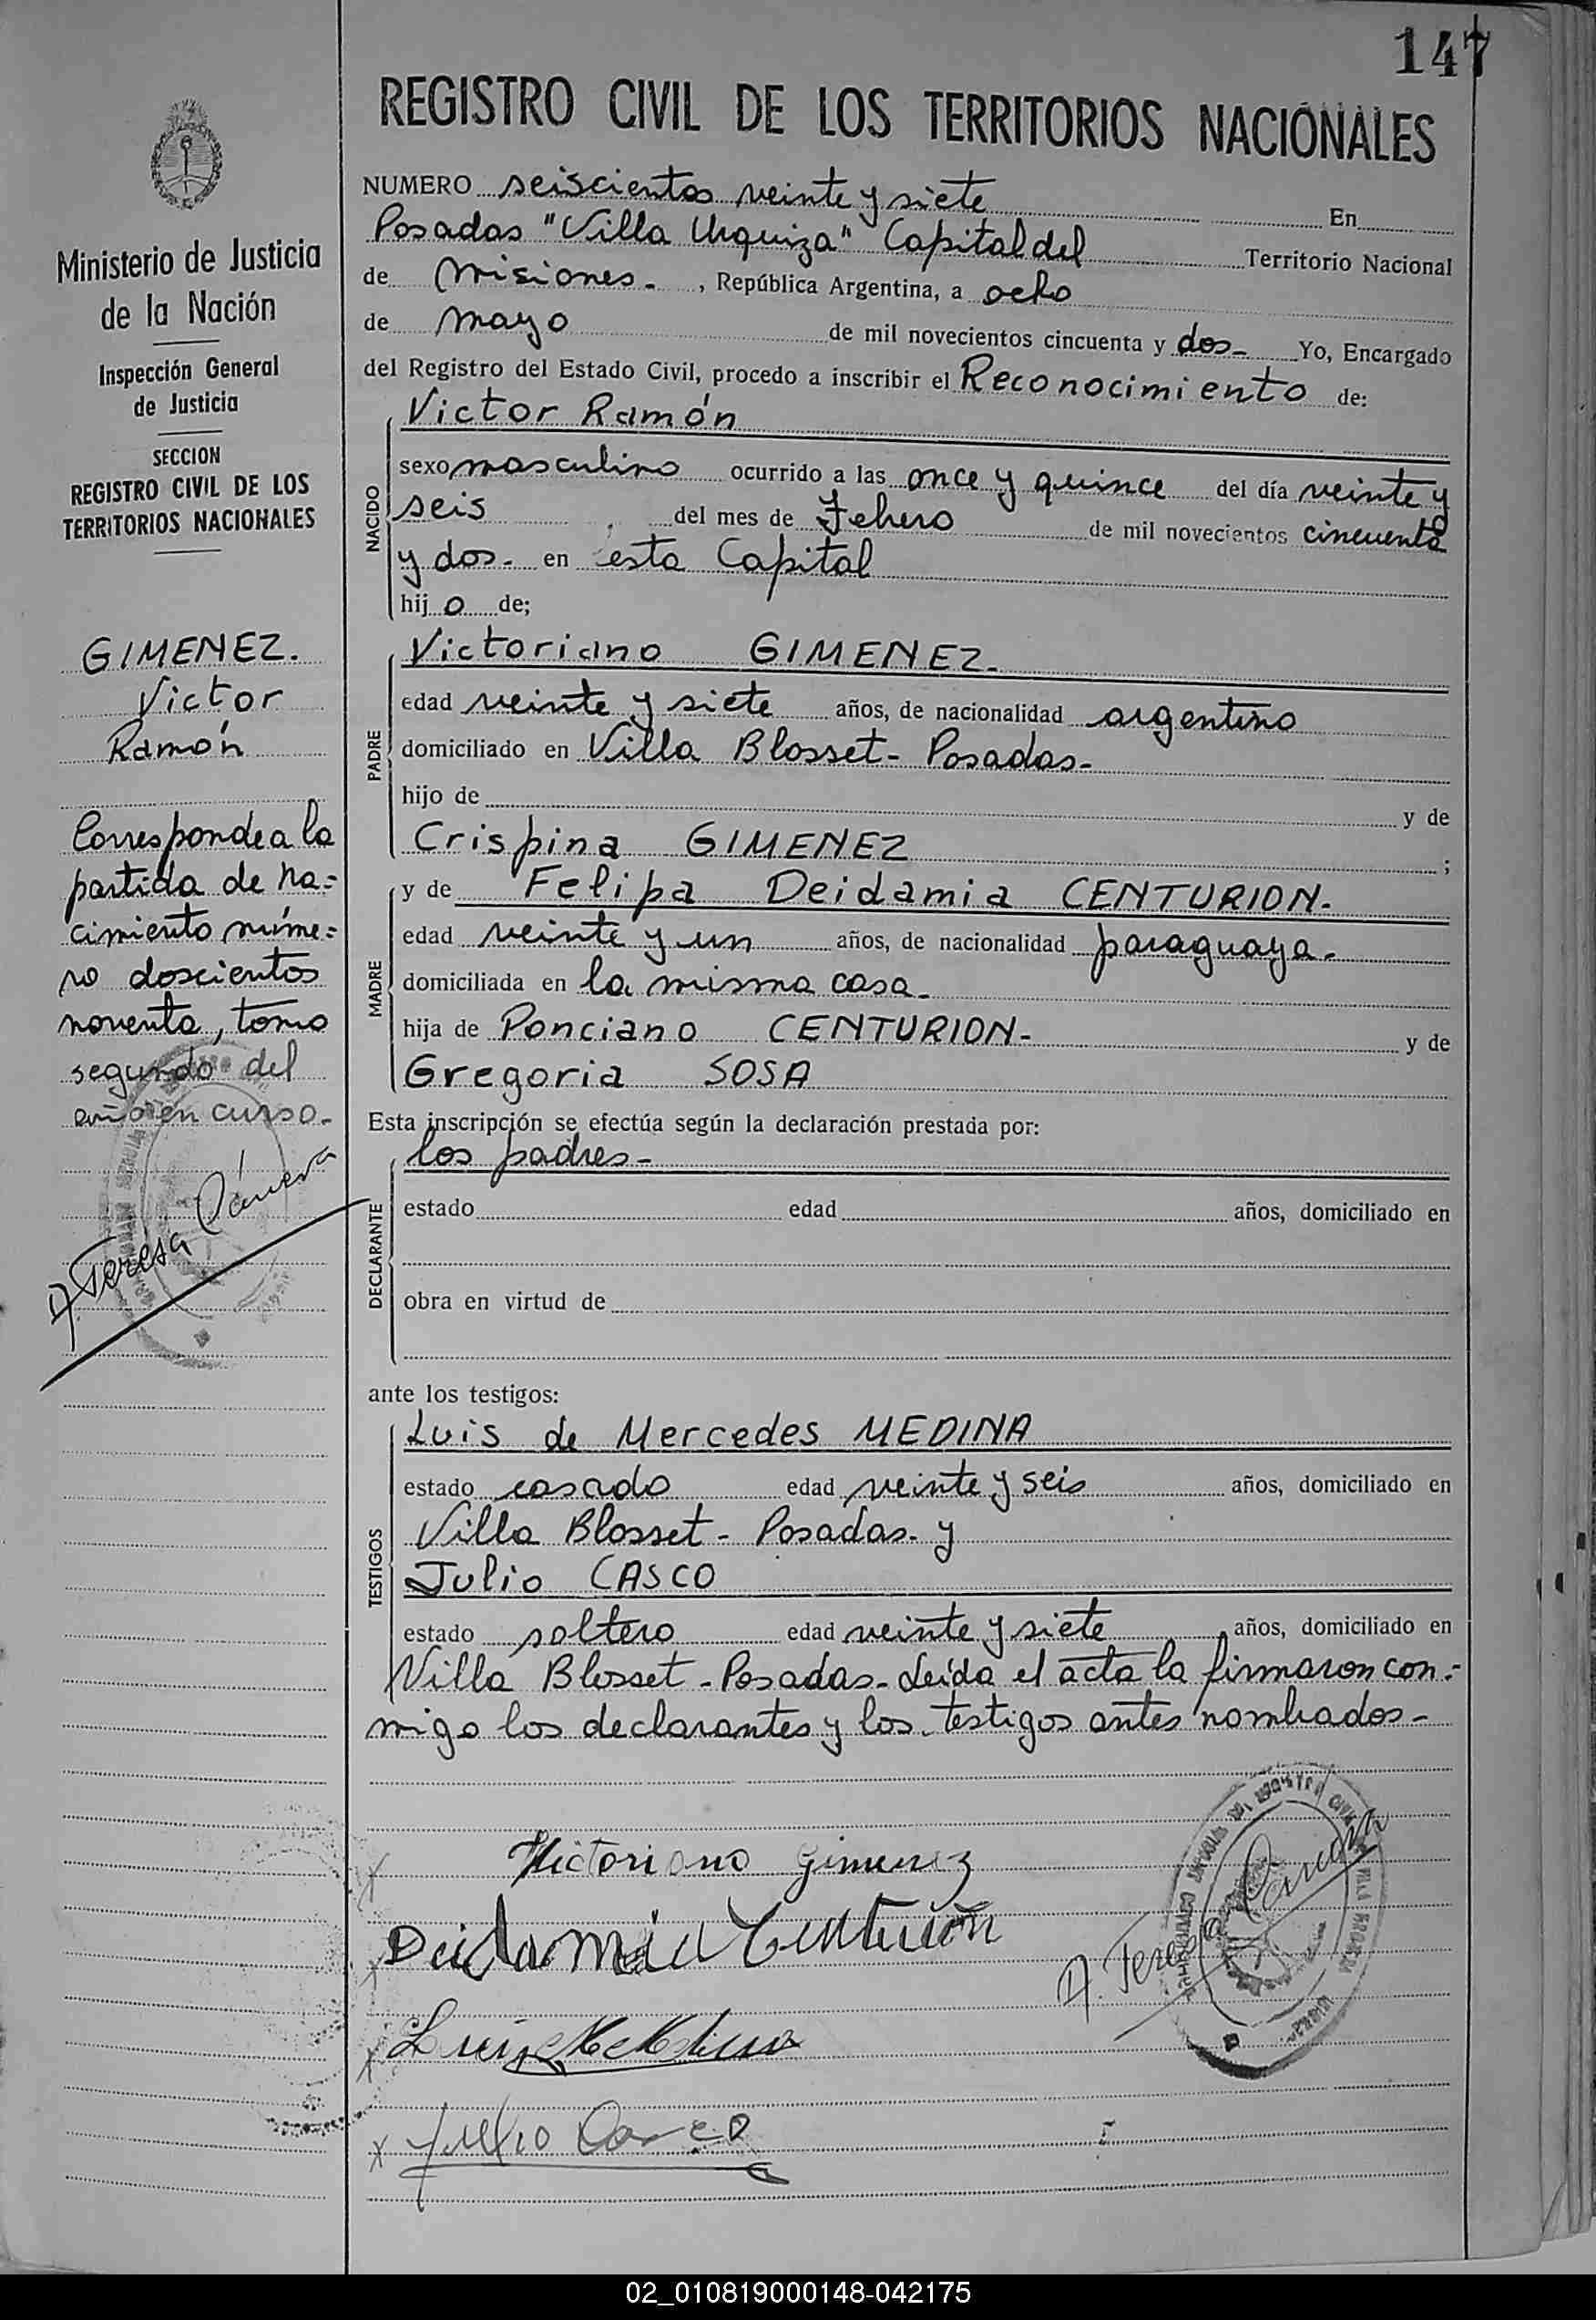 147
REGISTRO CIVIL DE LOS TERRITORIOS NACIONALES
NUMERO seiscientos veinte y siete En
Posadas "Villa Urquiza" Capital del Territorio Nacional
de Misiones. , República Argentina, a ocho
de mayo de mil novecientos cincuenta y dos- Yo, Encargado
del Registro del Estado Civil, procedo a inscribir el Reconocimiento de:
NACIDO
Victor Ramón
sexo masculino ocurrido a las once y quince del día veinte y
seis del mes de Febrero de mil novecientos cincuenta
y dos- en esta Capital
hij o de;
PADRE
Victoriano GIMENEZ-
edad veinte y siete años, de nacionalidad argentino
domiciliado en Villa Blosset- Posadas-
hijo de y de
Crispina GIMENEZ ;
MADRE
y de Felipa Deidamia CENTURION-
edad veinte y un años, de nacionalidad paraguaya-
domiciliada en la misma casa-
hija de Ponciano CENTURION- y de
Gregoria SOSA
Esta inscripción se efectúa según la declaración prestada por:
DECLARANTE
los padres-
estado edad años, domiciliado en
obra en virtud de
ante los testigos:
TESTIGOS
Luis de Mercedes MEDINA
estado casado edad veinte y seis años, domiciliado en
Villa Blosset- Posadas- y
Julio CASCO
estado soltero edad veinte y siete años, domiciliado en
Villa Blosset-Posadas- Leída el acta la firmaron con-
migo los declarantes y los testigos antes nombrados-
Victoriano Gimenez
Deidamia Centurión
Julio Casco
Ministerio de Justicia
de la Nación
Inspección General
de Justicia
SECCION
REGISTRO CIVIL DE LOS
TERRITORIOS NACIONALES
GIMENEZ.
Victor
Ramón
Corresponde a la
partida de na-
cimiento núme-
ro doscientos
noventa, tomo
segundo del
año en curso-
02_010819000148-042175